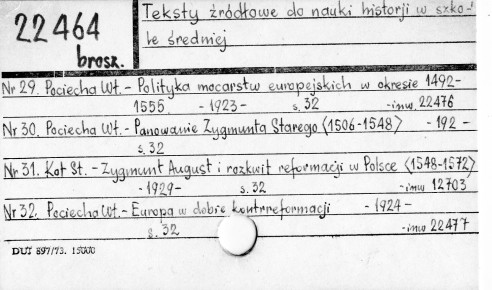 22464
brosz.
Teksty źródłowe do nauki historji w szko-
le średniej
Nr 29. Pociecha Wł. - Polityka mocarstw europejskich w okresie 1492-
1555. - 1923 - s. 32 - inw. 22476
Nr 30. Pociecha Wł. - Panowanie Zygmunta Starego (1506-1548) - 192 -
s. 32
Nr 31. Kot St. - Zygmunt August i rozkwit reformacji w Polsce (1548-1572)
- 1929 - s. 32 - inw 12703
Nr 32. Pociecha Wł. - Europa w dobie kontrreformacji - 1924 -
s. 32 - inw 22477
DUJ 897/73. 15000